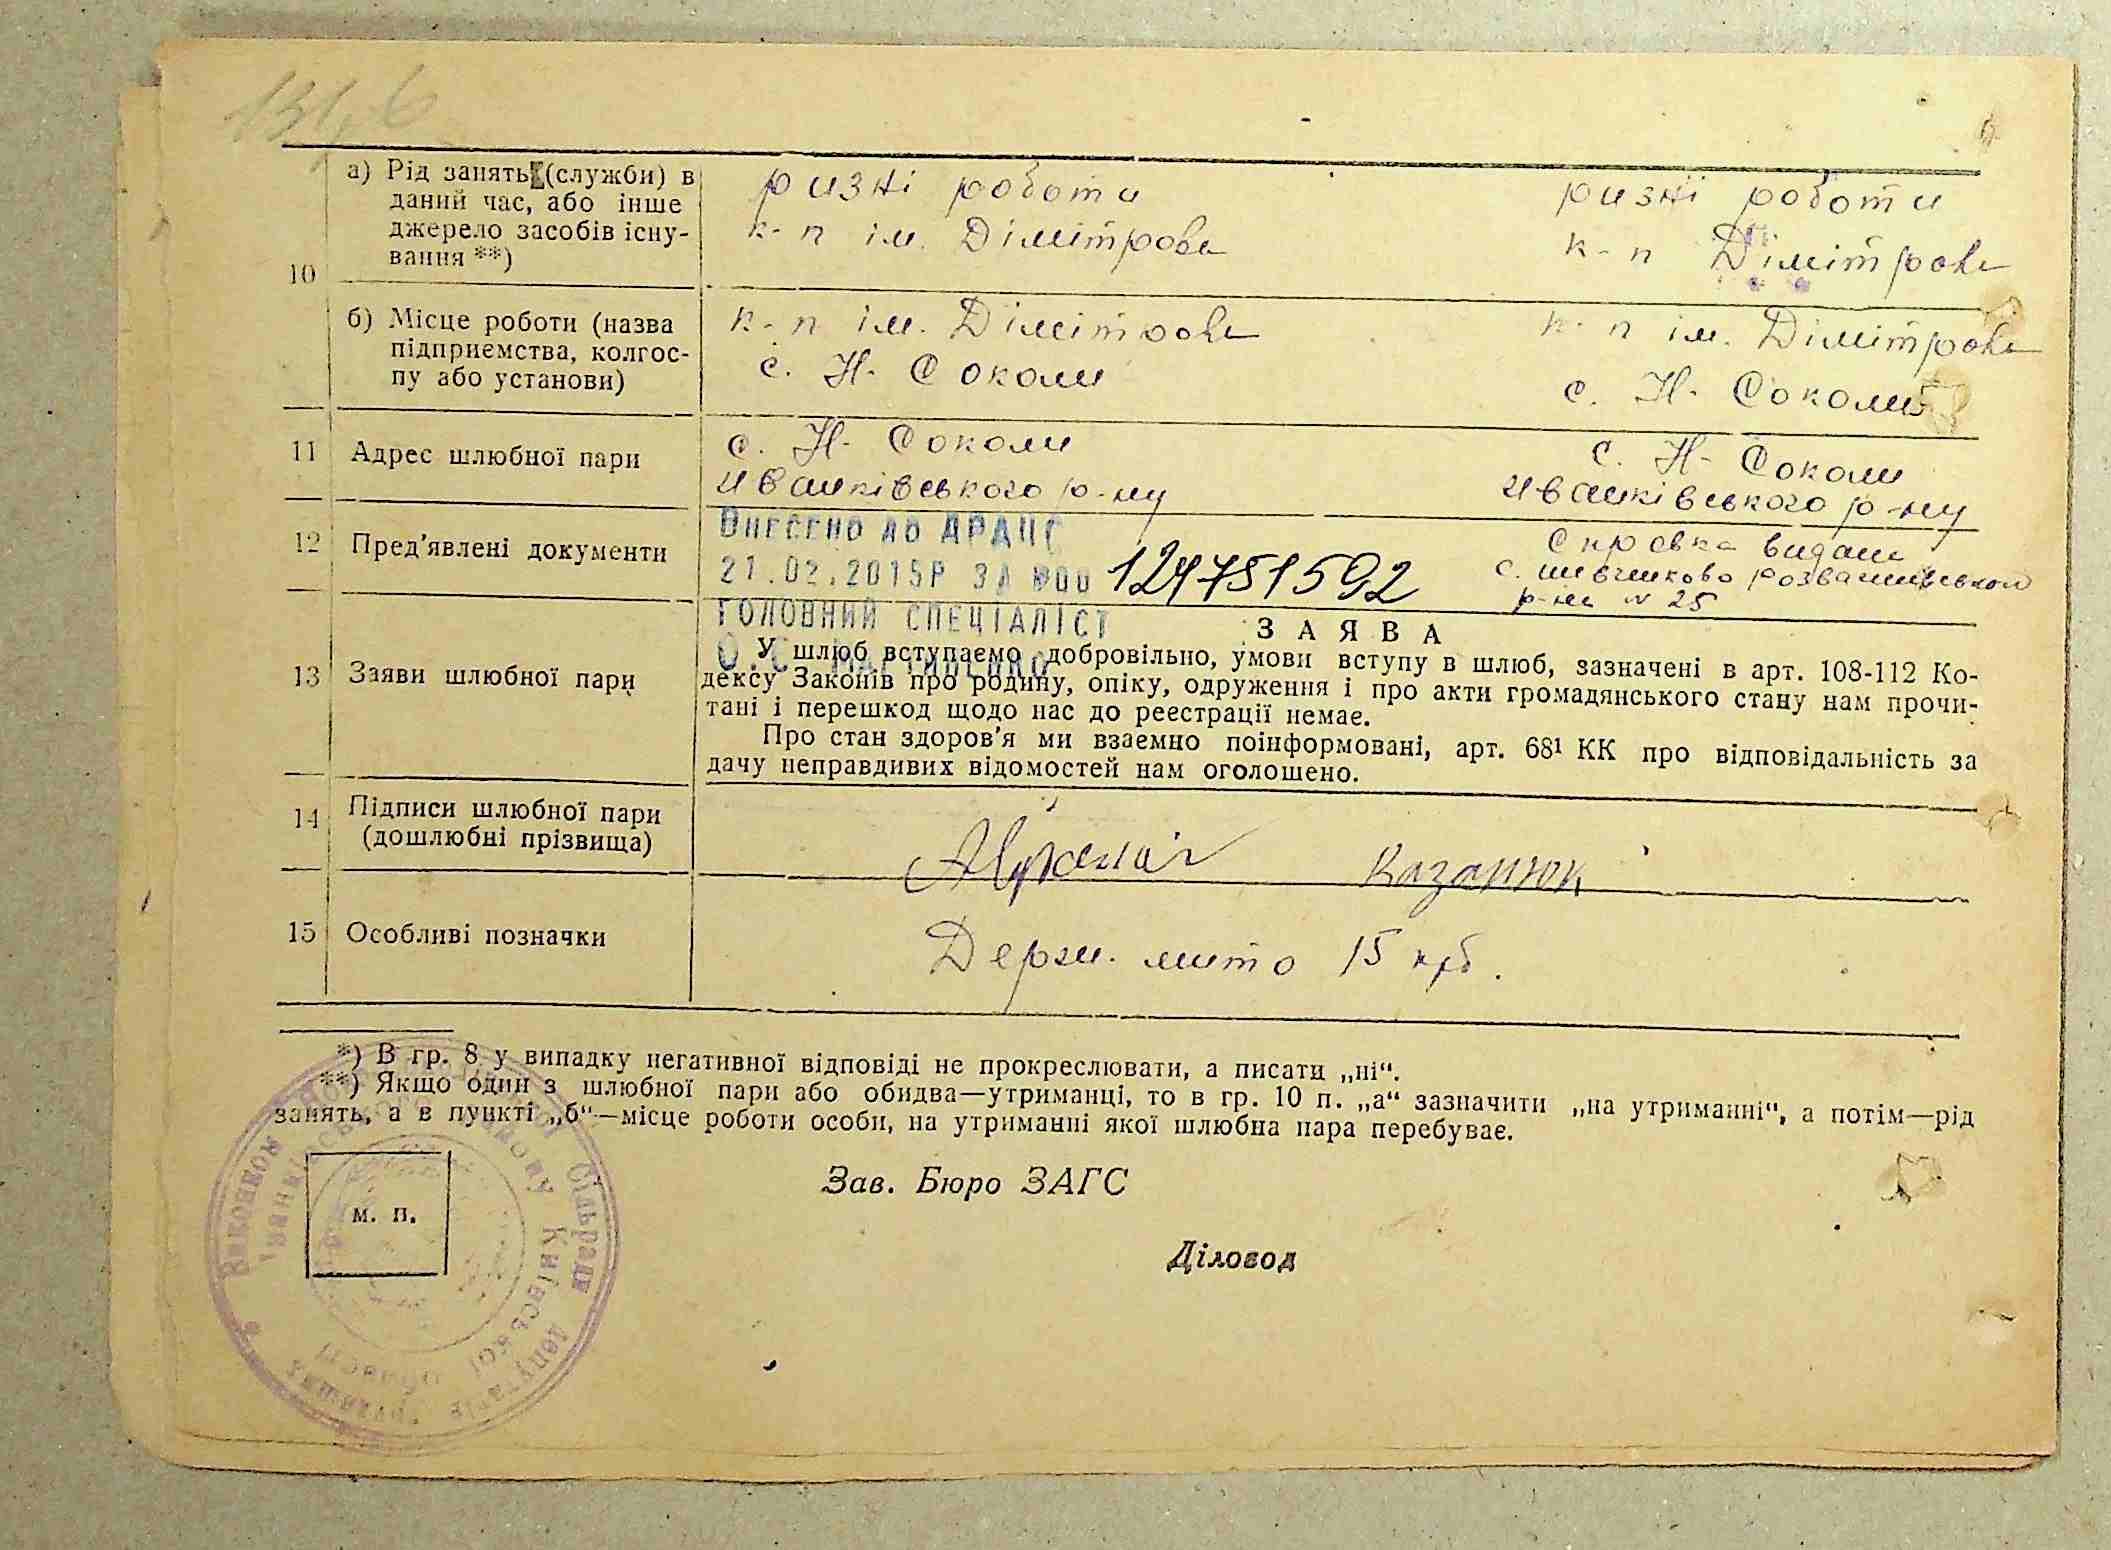 134,6
а) Рід занять (служби) в
даний час, або інше
джерело засобів існу-
вання **)
ризні роботи
к-п ім. Дімітрова
ризні роботи
к-п Дімітрова
10
б) Місце роботи (назва
підприємства, колгос-
пу або установи)
к-п ім. Дімітрова
с. Н-Соколи
к-п ім. Дімітрова
с. Н-Соколи
11 Адрес шлюбної пари
с. Н-Соколи
иванківського р-ну
с. Н-Соколи
иванківського р-ну
12 Пред'явлені документи
ВНЕСЕНО ДО ДРАЦС
21.02.2015Р ЗА №00 124751592
ГОЛОВНИЙ СПЕЦІАЛІСТ
Справка видана
с. шевченково розважівського
р-на № 25
13 Заяви шлюбної пари
ЗАЯВА
У шлюб вступаємо добровільно, умови вступу в шлюб, зазначені в арт. 108-112 Ко-
дексу Законів про родину, опіку, одруження і про акти громадянського стану нам прочи-
тані і перешкод щодо нас до реєстрації немає.
Про стан здоров'я ми взаємно поінформовані, арт. 68¹ КК про відповідальність за
дачу неправдивих відомостей нам оголошено.
14 Підписи шлюбної пари
(дошлюбні прізвища)
Казанюк
15 Особливі позначки
Держ. мито 15 крб.
*) В гр. 8 у випадку негативної відповіді не прокреслювати, а писати „ні“.
**) Якщо один з шлюбної пари або обидва—утриманці, то в гр. 10 п. „а“ зазначити „на утриманні“, а потім—рід
занять, а в пункті „б“—місце роботи особи, на утриманні якої шлюбна пара перебуває.
Зав. Бюро ЗАГС
м. п.
Діловод
Виконком Сільради депутатів трудящих
Київської області